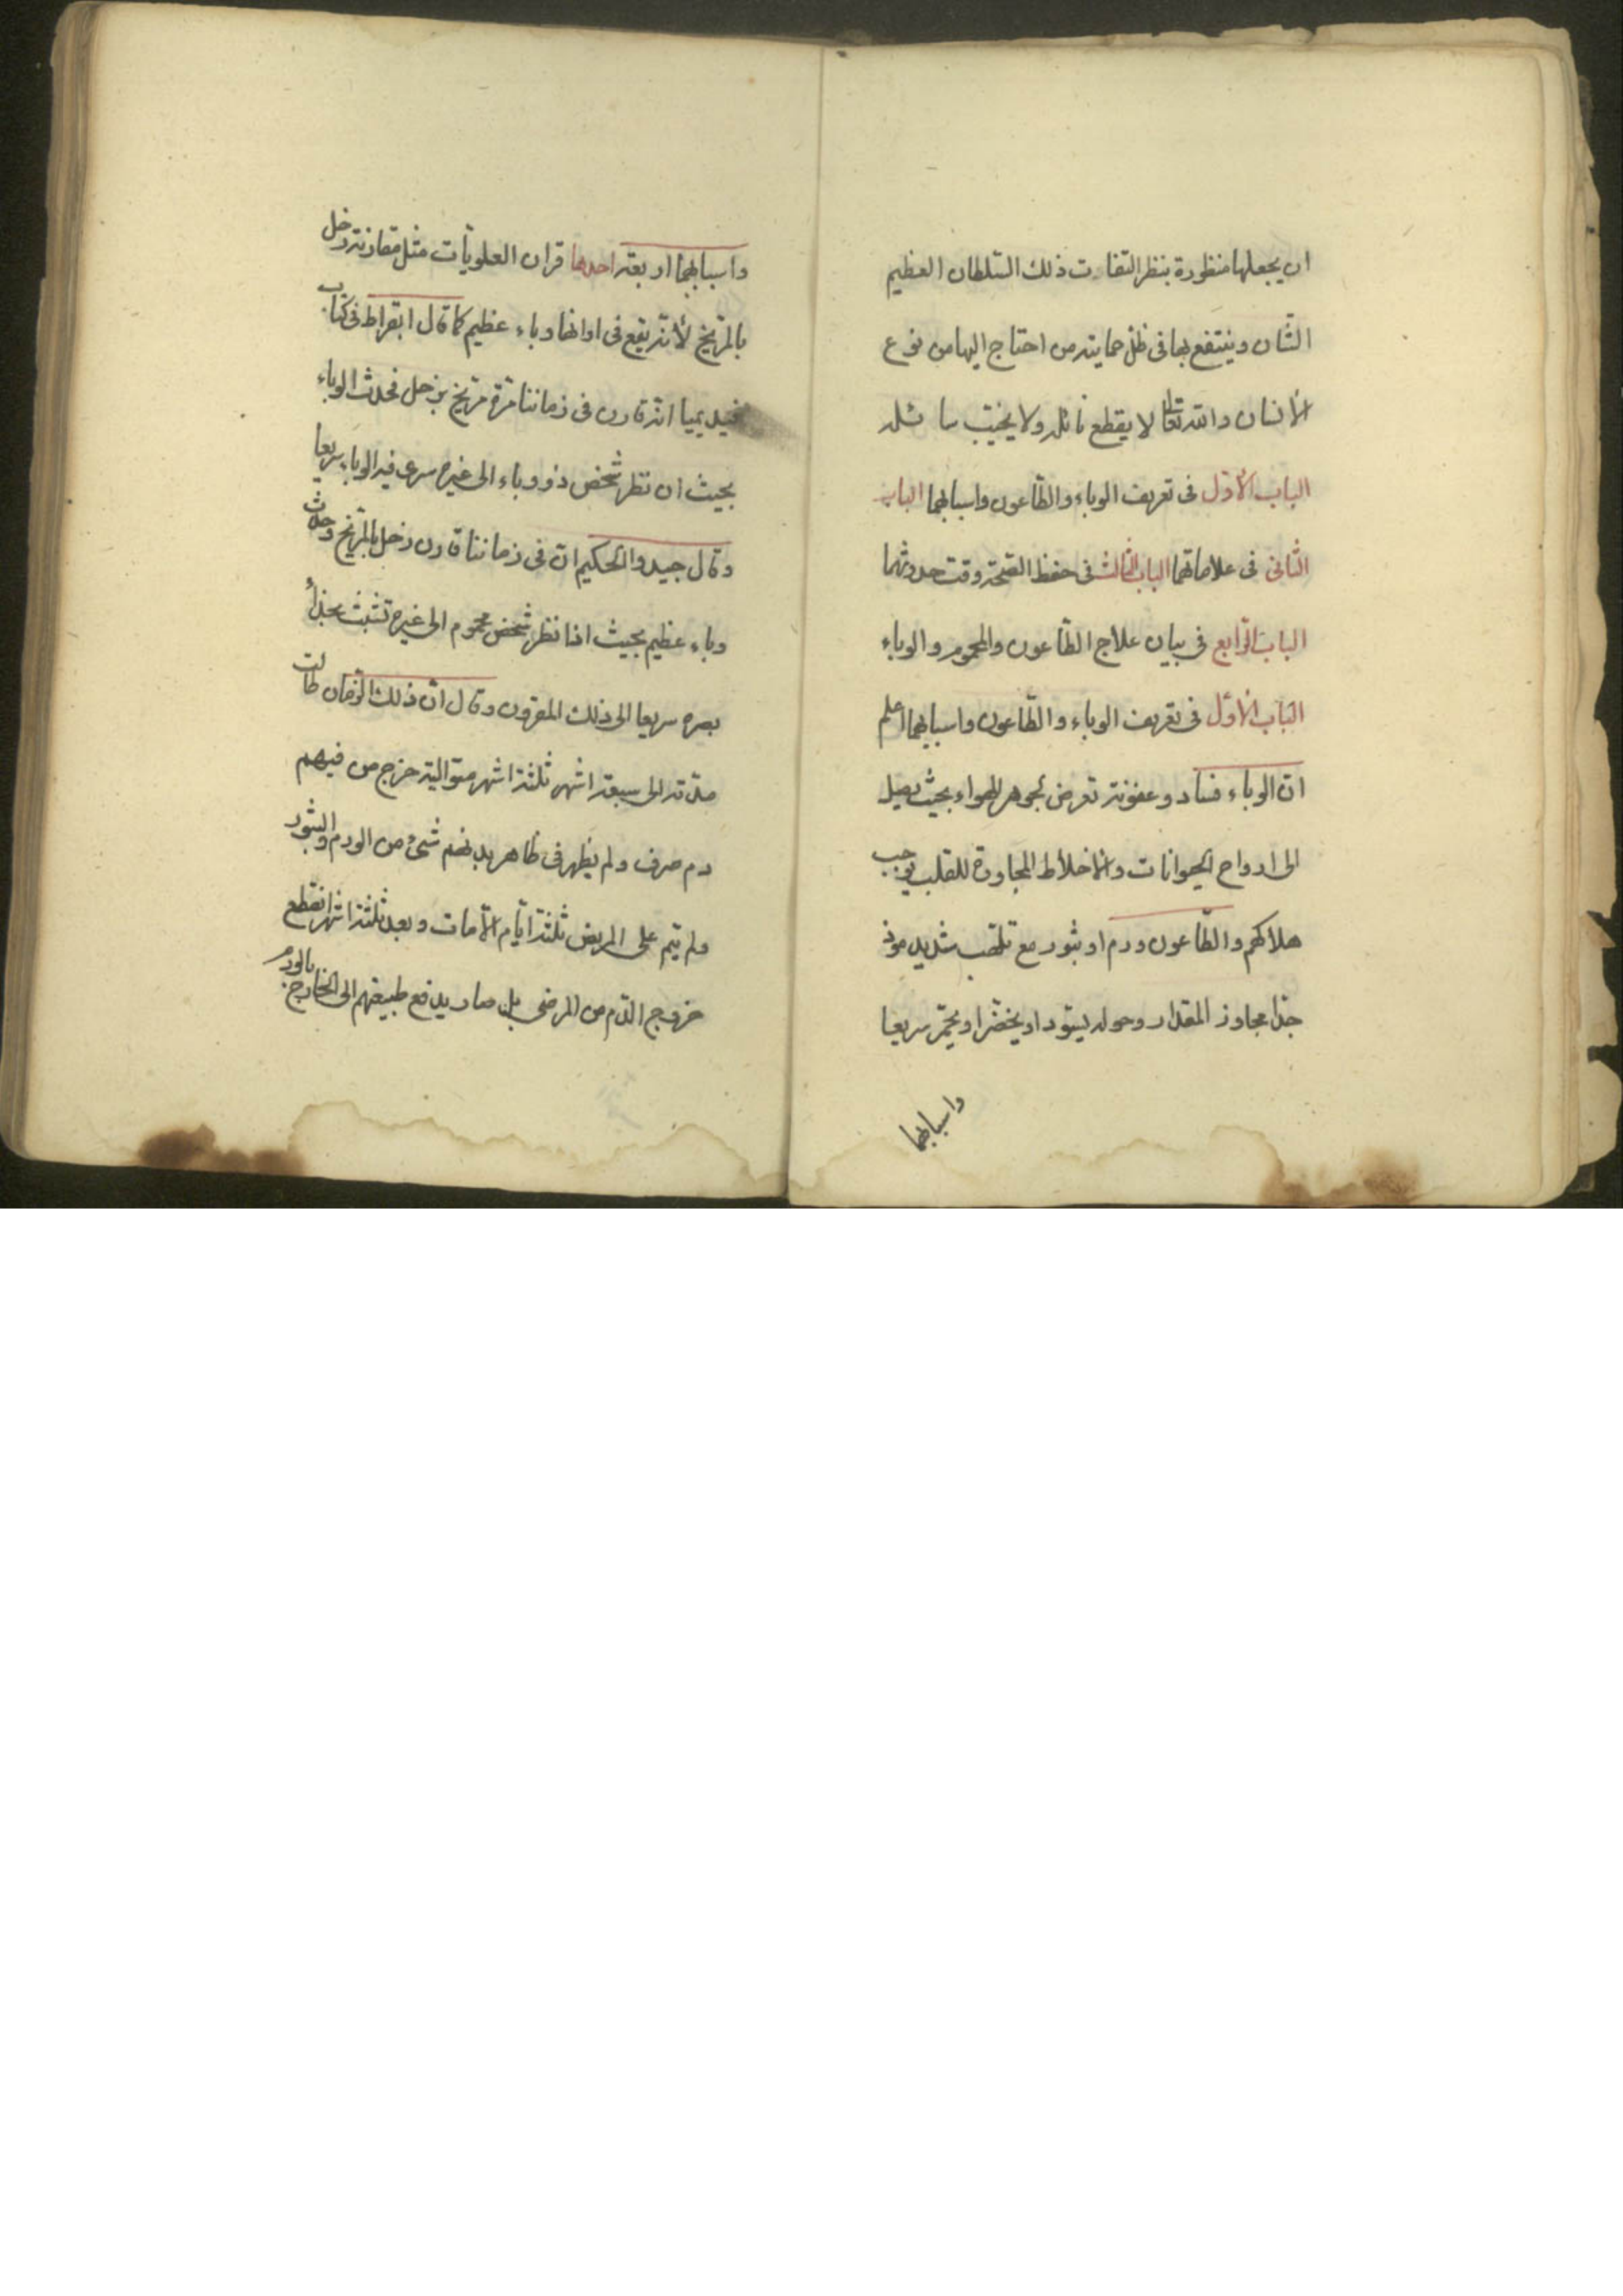 ان يجعلها منظورة بنظر التفات ذلك السّلطان العظيم
الشّان وينتفع بها فى ظلّ حمايته من احتاج اليها من نوع
الأنسان والله تعالى لا يقطع نائله ولا يخيّب سائله
الباب الأوّل فى تعريف الوباء والطّاعون واسبابهما الباب
الثانى فى علاماتهما الباب الثالث فى حفظ الصّحة وقت حدوثهما
الباب الرّابع فى بيان علاج الطّاعون والمحموم والوباء
الباب الأوّل فى تعريف الوباء والطّاعون واسبابهما اعلم
انّ الوباء فساد وعفونة تعرض لجوهر الهواء بحيث يصل
الى ارواح الحيوانات والأخلاط المجاورة للقلب يوجب
هلاكهم والطّاعون ورم او بثور مع تلهّب شديد موذ
جدّا مجاوز المقدار وحوله يسودّ او يخضرّ او يحمرّ سريعا
واسبابهما
واسبابهما اربعة احدها قران العلويّات مثل مقارنة زحل
بالمرّيخ لأنّه يقع فى اوانها وباء عظيم كما قال ابقراط فى كتاب
انّه قارن فى زماننا مرّة مرّيخ بزحل فحدث الوباء
بحيث ان نظر شخص ذو وباء الى غيره سرى فيه الوباء سريعا
وقال جيد والحكيم انّ فى زماننا قارن زحل بالمرّيخ وحدث
وباء عظيم بحيث اذا نظر شخص محموم الى غيره تشبث بحذاء
بصره سريعا الى ذلك المقرون وقال انّ ذلك الزمان طالت
مدّته الى سبعة اشهر ثلثة اشهر متوالية خرج من فيهم
دم صرف ولم يظهر فى ظاهر بدنهم شئ من الورم والبثور
ولم يتم على المريض ثلثة ايّام الّا مات وبعد ثلثة اشهر انقطع
خروج الدّم من المرضى بل صار يدفع طبيعتهم الى الخارج بالورم